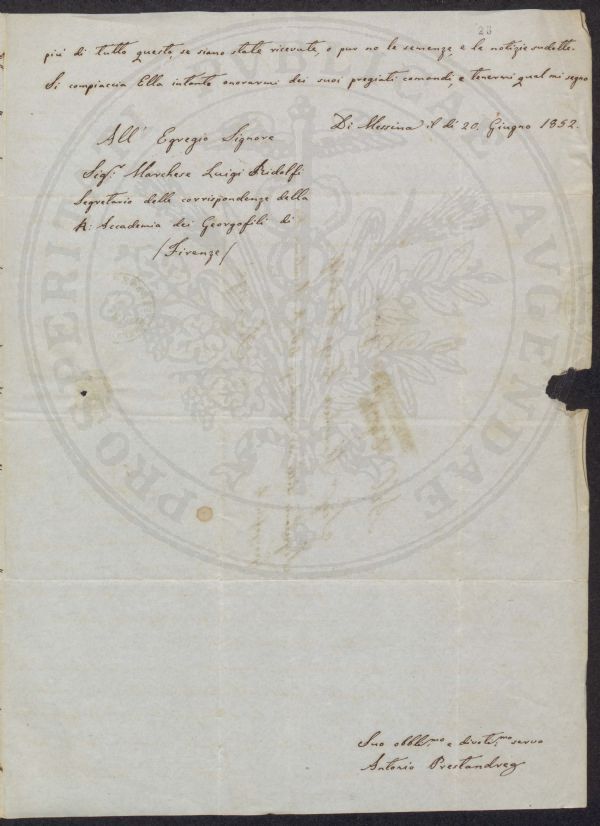 28
piú di tutto questo, se siano state ricevute, o pur no le semenze, e le notizie sudette.
Si compiaccia Ella intanto onorarmi dei suoi pregiati comandi, e tenermi qual mi segno
Di Messina il dí 20. Giugno 1852.
All' Egregio Signore
Sig.r Marchese Luigi Ridolfi
Segretario delle corrispondenze della
R: Accademia dei Georgofili di
/Firenze/
PROSPERITATI PVBLICAE AVGENDAE
Suo obblig.mo e divotis.mo servo
Antonio Prestandrea